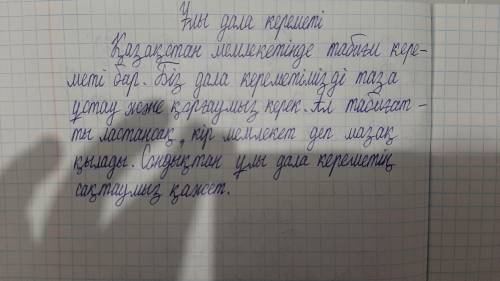 Ұлы дала кереметі
Қазақстан мемлекетінде табиғи кере-
меті бар. Біз дала кереметімізді таза
ұстау және қорғаумыз керек. Ал табиғат-
ты ластансақ, кір мемлекет деп мазақ
қылады. Сондықтан ұлы дала кереметің
сақтаумыз қажет.